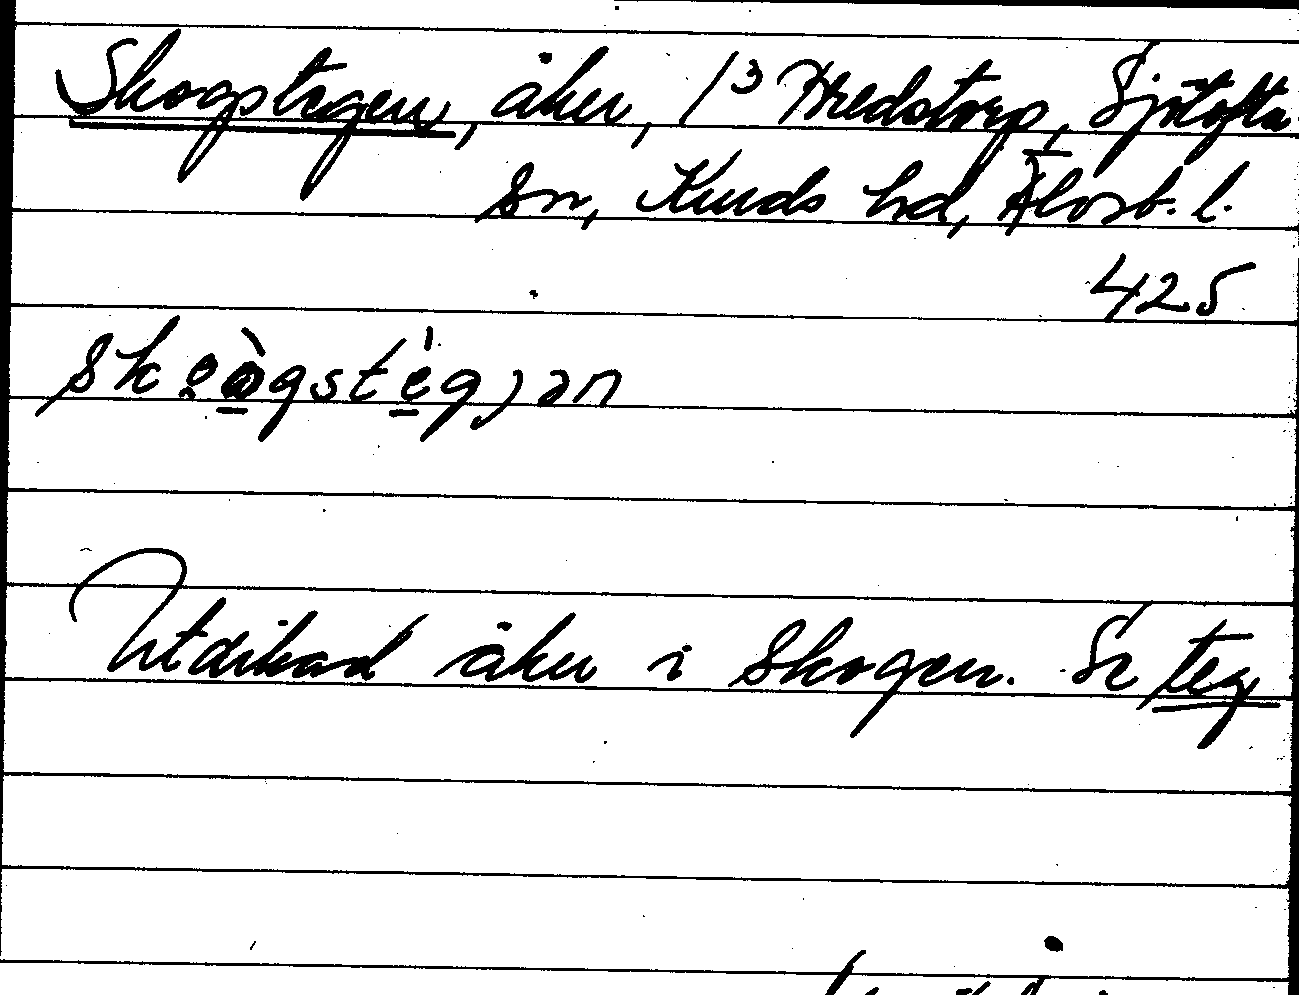 Skogstegen, åker, 1³ Hredstorp, Sjötofta
sn, Kinds hd, Älvsb. l.
425
Utdikad åker i skogen. Se teg